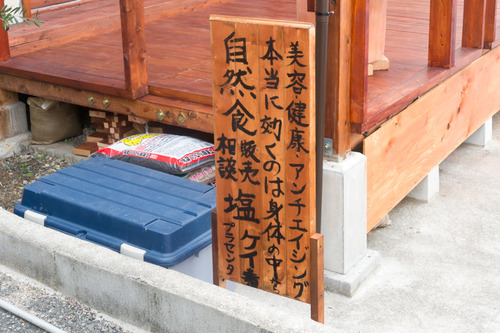 美容・健康・アンチエイジング
本当に効くのは身体の中から
自然食販売 塩 ケイ素
相談 プラセンタ